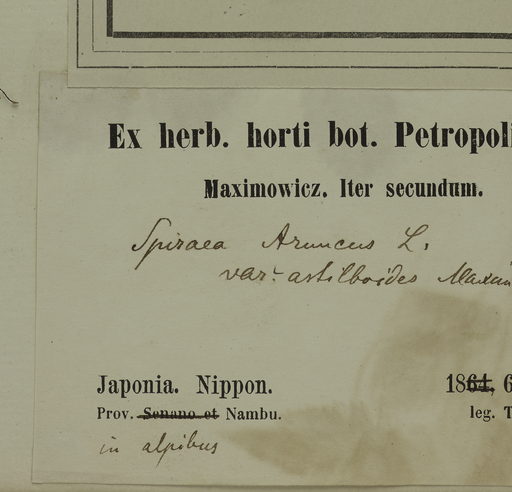 Ex herb. horti bot. Petropoli
Maximowicz. Iter secundum.
Spiraea Aruncus L.
var. astilboides Maxim
Japonia. Nippon. 1864, 6
Prov. Senano et Nambu. leg. T
in alpibus